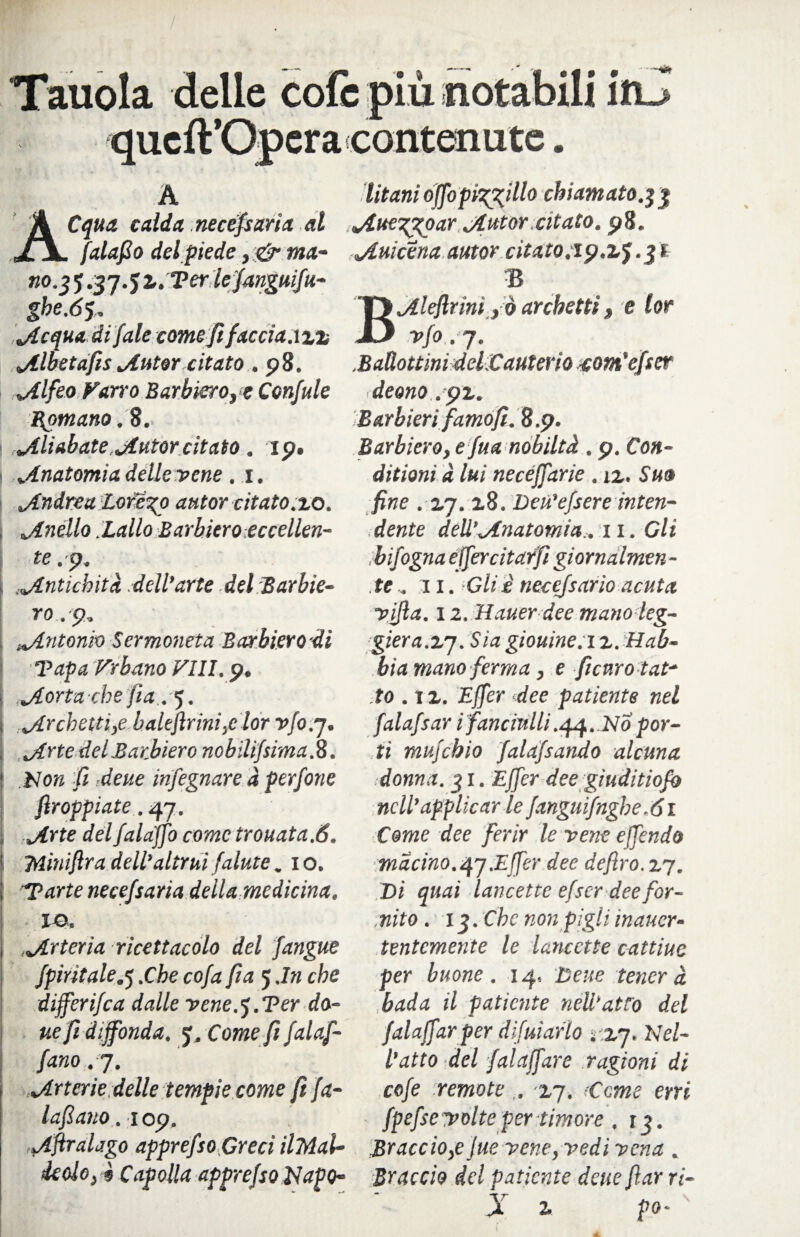 Tauola delle coſe più notabili in
queſt'Opera contenute.
A
ACqua calda neceſsaria al
ſalaſſo del piede, & ma-
no.35.37.52. Per le ſanguiſu-
ghe.65.
Acqua di ſale come ſi faccia.122
Albetaſis Autor citato . 98.
Alfeo Varro Barbiero, e Conſule
Romano . 8.
Aliabate Autor citato . 19.
Anatomia delle vene . 1.
Andrea Lorẽzo autor citato.20.
Anello Lallo Barbiero eccellen-
te . 9.
Antichità dell'arte del Barbie-
ro . 9.
Antonio Sermoneta Barbiero di
Papa Vrbano VIII. 9.
Aorta che ſia . 5.
Archetti,e baleſtrini,e lor vſo.7.
Arte del Barbiero nobiliſsima.8.
Non ſi deue inſegnare à perſone
ſtroppiate . 47.
Arte del ſalaſſo come trouata.6.
Miniſtra dell'altrui ſalute . 10.
Parte neceſsaria della medicina.
10.
Arteria ricettacolo del ſangue
ſpiritale.5.Che coſa ſia 5.In che
differiſca dalle vene.5.Per do-
ue ſi diffonda. 5. Come ſi ſalaſ-
ſano . 7.
Arterie delle tempie come ſi ſa-
laſſano . 109.
Aſtralago appreſso Greci il Mal-
leolo, è Capolla appreſso Napo-
litani oſſo pizzillo chiamato.33
Auezzoar Autor citato. 98.
Auicena autor citato.19.25.31
B
BAleſtrini, ò archetti, e lor
vſo . 7.
Ballottini del Cauterio com'eſser
deono . 92.
Barbieri famoſi. 8.9.
Barbiero, e ſua nobiltà . 9. Con-
ditioni à lui neceſſarie . 12. Suo
fine . 27. 28. Deu'eſsere inten-
dente dell'Anatomia. 11. Gli
biſogna eſſercitarſi giornalmen-
te . 11. Gli è neceſsario acuta
viſta. 12. Hauer dee mano leg-
giera.27. Sia giouine.12. Hab-
bia mano ferma , e ſicuro tat-
to . 12. Eſſer dee patiente nel
ſalaſsar i fanciulli.44. Nò por-
ti muſchio ſalaſsando alcuna
donna. 31. Eſſer dee giuditioſo
nell'applicar le ſanguiſughe.61
Come dee ferir le vene eſſendo
mãcino.47.Eſſer dee deſtro.27.
Di quai lancette eſser dee for-
nito . 13. Che non pigli inauer-
tentemente le lancette cattiue
per buone . 14. Deue tener à
bada il patiente nell'atto del
ſalaſſar per diſuiarlo . 27. Nel-
l'atto del ſalaſſare ragioni di
coſe remote . 27. Come erri
ſpeſse volte per timore . 13.
Braccio,e ſue vene, vedi vena .
Braccio del patiente deue ſtar ri-
Y 2 po-